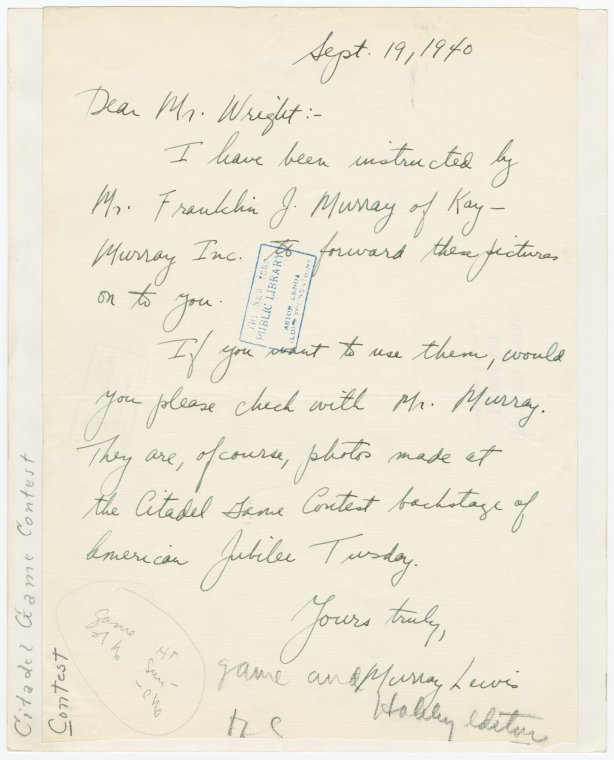 Sept. 19, 1940
Dear Mr. Wright:-
I have been instructed by
Mr. Franklin J. Murray of Kay-
Murray Inc. to forward these pictures
on to you.
If you want to use them, would
you please check with Mr. Murray.
They are, of course, photos made at
the Citadel Game Contest backstage of
American Jubilee Tuesday.
Yours truly,
Murray Lewis
game and Hobby editor
THE NEW YORK
PUBLIC LIBRARY
ASTOR LENOX
Citadel Game Contest
Contest
game